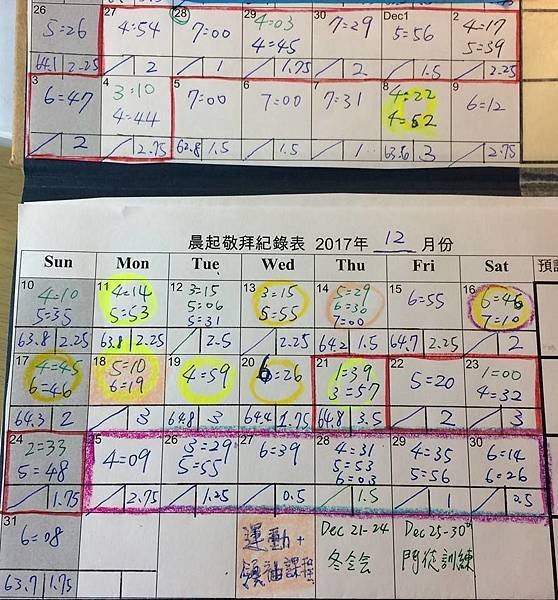 26 27 28 29 30 Dec1 2
5=26 4=54 7=00 4=03 7=29 5=56 4=17
4=45 5=39
64.1 2.25 2 1 1.75 2 1.5 2.25
3 4 5 6 7 8 9
6=47 3=10 7=00 7=00 7=31 4=22 6=12
4=44 4=52
2 2.75 62.8 1.5 1.5 1 63.6 3 2.75
晨起敬拜紀錄表 2017年 12 月份
Sun Mon Tue Wed Thu Fri Sat
10 11 12 13 14 15 16
4=10 4=14 3=15 3=15 5=29 6=55 6=46
5=35 5=53 5=06 5=55 6=30 7=10
5=31 7=00
63.8 2.25 63.8 2.25 2.5 2.25 64.2 1.5 64.7 2.25 2
17 18 19 20 21 22 23
4=45 5=10 4=59 6=26 1=39 5=20 1=00
6=46 6=19 3=57 4=32
64.3 2 3 64.8 3 64.4 1.75 64.8 3.5 2 3
24 25 26 27 28 29 30
2=33 4=09 3=29 6=39 4=31 4=35 6=14
5=48 5=55 5=53 5=56 6=26
6=03
1.75 2.75 1.25 0.5 1.5 1 0.5
31
6=08 運動+ Dec 21-24 Dec 25-30
課程 冬令会 門徒訓練
63.7 1.75